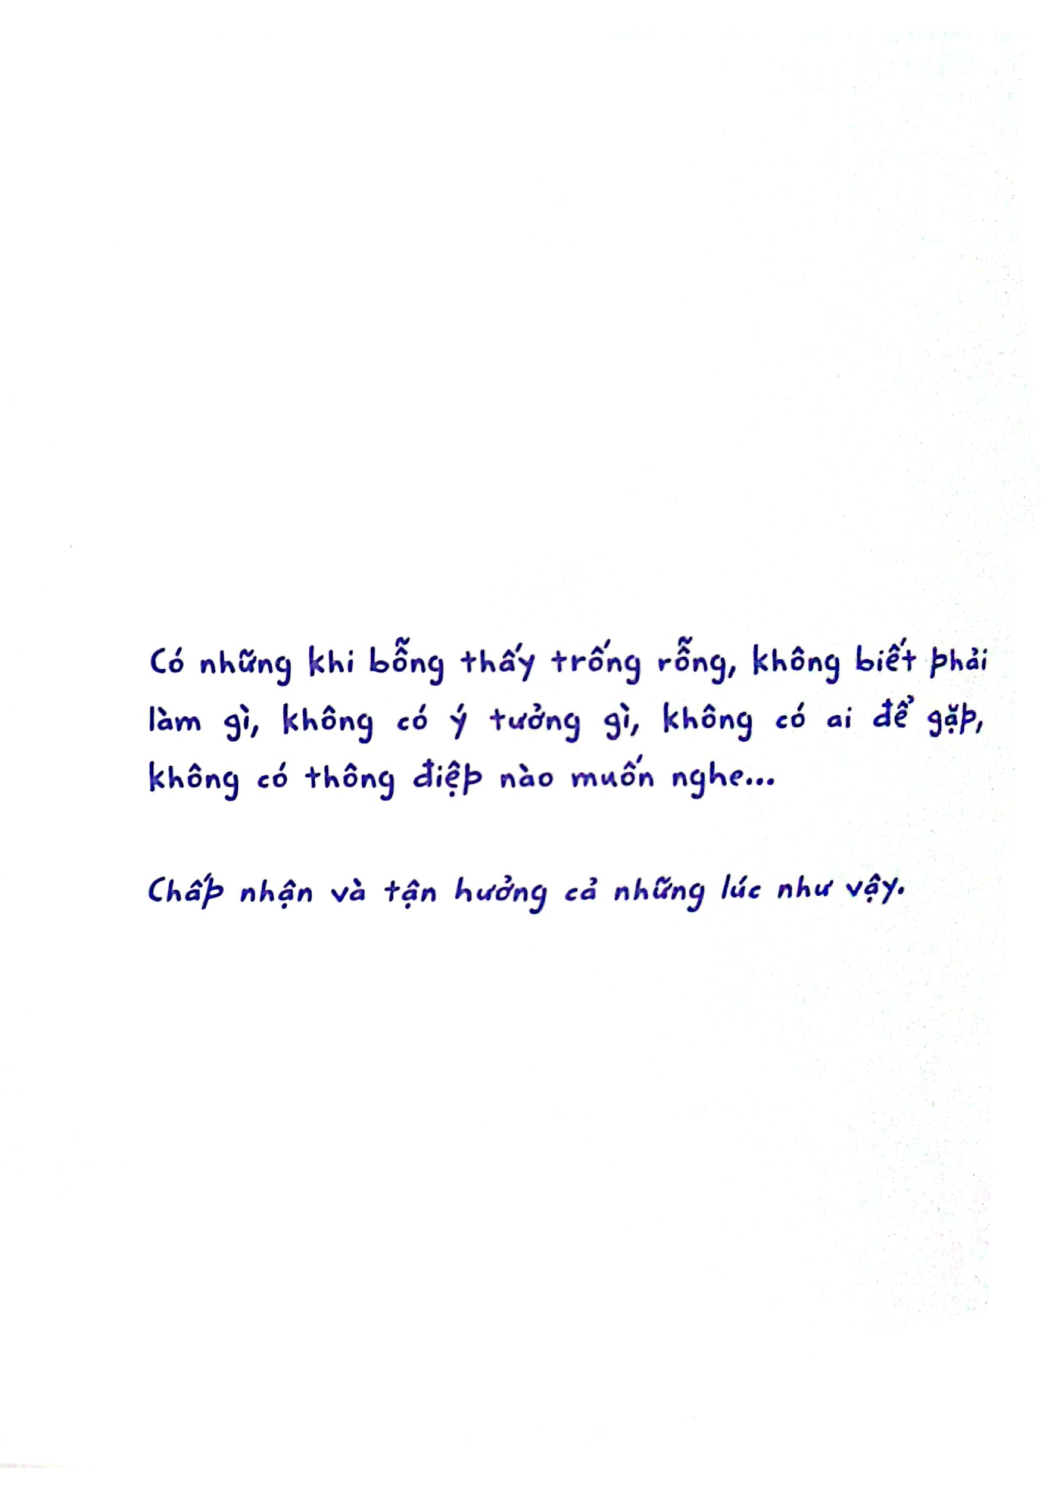 Có những khi bỗng thấy trống rỗng, không biết phải
làm gì, không có ý tưởng gì, không có ai để gặp,
không có thông điệp nào muốn nghe...
Chấp nhận và tận hưởng cả những lúc như vậy.